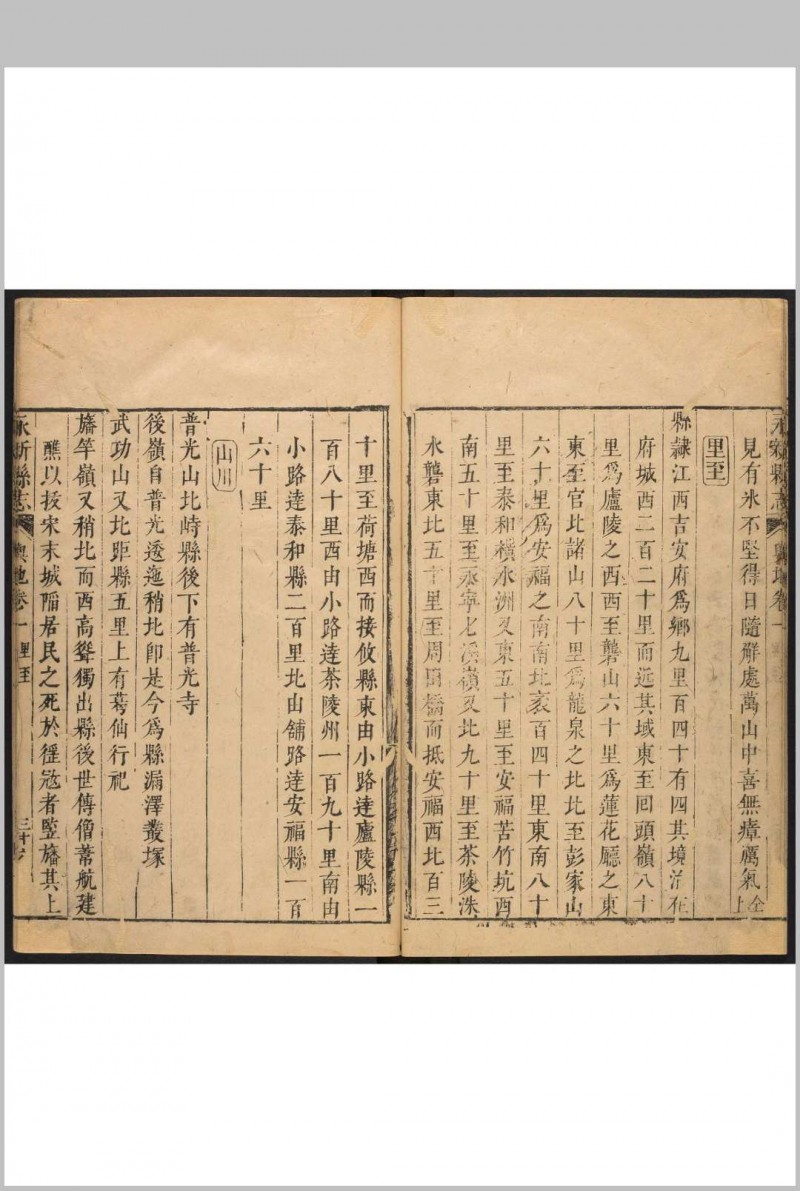 永新縣志 輿地卷一
見有氷不堅得日隨觧處萬山中喜無瘴癘氣仝上
里至
縣隷江西吉安府爲鄉九里百四十有四其境治在
府城西二百二十里而远其域東至回頭嶺八十
里爲廬陵之西西至礱山六十里爲蓮花廳之東
東至官北諸山八十里爲龍泉之北北至彭家山
六十里爲安福之南南北袤百四十里東南八十
里至泰和橫水洲又東五十里至安福苦竹坑西
南五十里至永寧七溪嶺又北九十里至茶陵洙
水礱東北五十里至周田橋而抵安福西北百三
十里至荷塘西而接攸縣東由小路達廬陵縣一
百八十里西由小路達茶陵州一百九十里南由
小路達泰和縣二百里北由舖路達安福縣一百
六十里
山川
普光山北峙縣後下有普光寺
後嶺自普光透迤稍北卽是今爲縣漏澤叢塚
武功山又北距縣五里上有葛仙行祀
旛竿嶺又稍北而西高聳獨出縣後世傳僧蓄航建
醮以拔宋末城陷居民之死於徑寇者竪旛其上
永新縣志 輿地卷一 里至